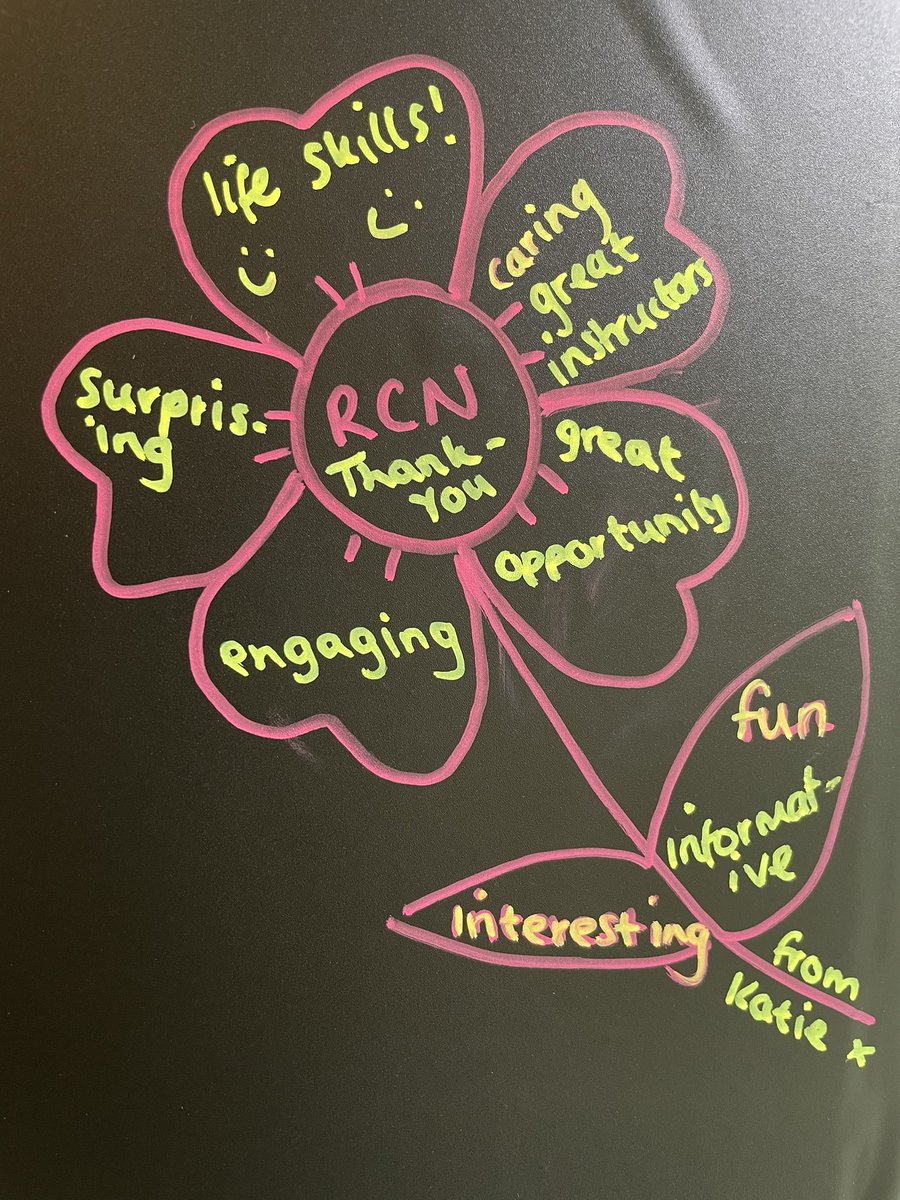 life skills!
caring
great
instructors
surpris-
ing
RCN
Thank-
You
great
opportunity
engaging
fun
informat-
ive
interesting
from
Katie x